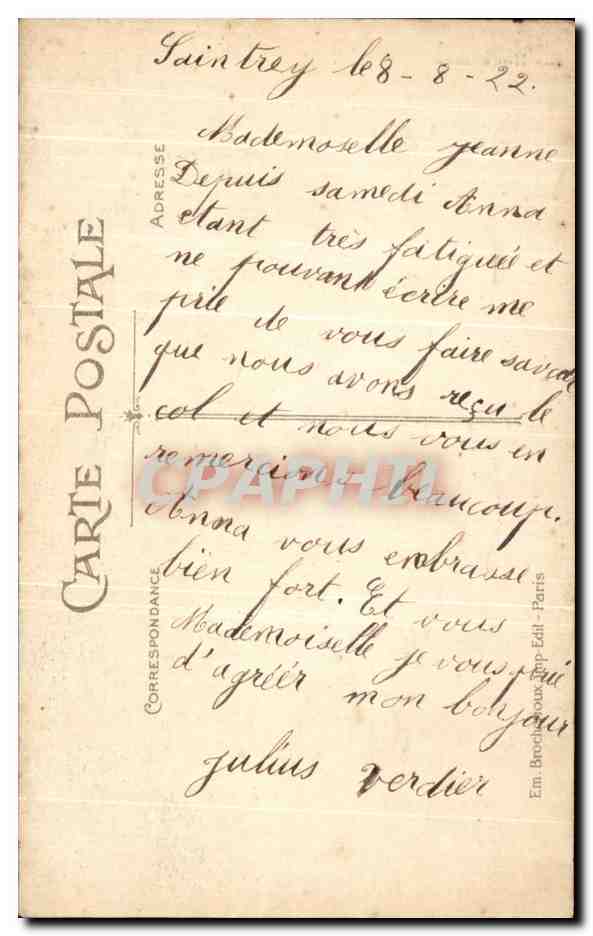 Saintrey le 8 - 8 - 22.
Mademoselle Jeanne
Depuis samedi Anna
etant très fatiguée et
ne pouvant écrire me
prie de vous faire savoir
que nous avons reçu le
col et nous vous en
remercions beaucoup.
Anna vous embrasse
bien fort. Et vous
Mademoiselle je vous prie
d'agréér mon bonjour
Julius Verdier
CARTE POSTALE
ADRESSE
CORRESPONDANCE
CPAPHIL
Imp-Edit - Paris